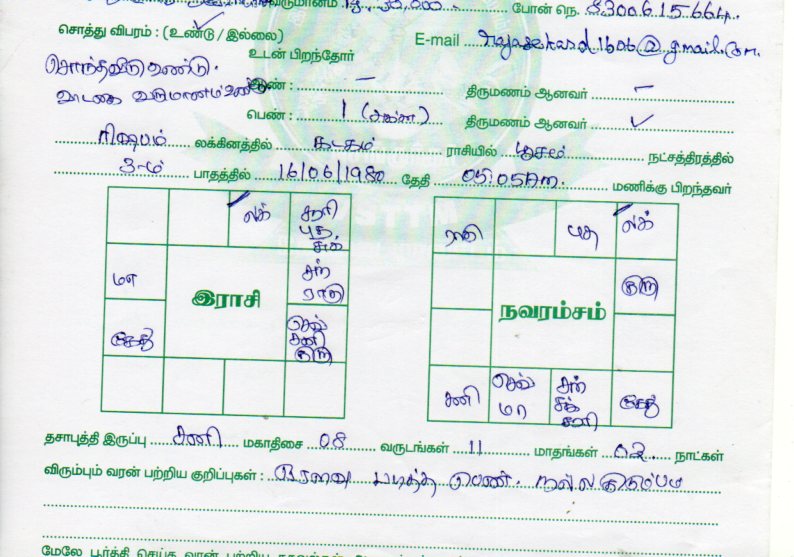 வருமானம் போன் நெ. 8300615664.
சொத்து விபரம் : (உண்டு / இல்லை) E-mail
உடன் பிறந்தோர்
சொந்தவீடு உண்டு. ஆண் : – திருமணம் ஆனவர் –
வாடகை வருமானம் உண்டு
பெண் : 1 திருமணம் ஆனவர் ✓
ரிஷபம் லக்கினத்தில் கடகம் ராசியில் பூசம் நட்சத்திரத்தில்
3-ம் பாதத்தில் 16/06/1980 தேதி 05:05 Am. மணிக்கு பிறந்தவர்
லக் சூரி புத சுக்
மா சந் ராகு
இராசி
கேது செவ் சனி குரு
ராகு புத லக்
குரு
நவரம்சம்
சனி செவ் மா சந் சுக் சூரி கேது
தசாபுத்தி இருப்பு சனி மகாதிசை 08 வருடங்கள் 11 மாதங்கள் 02 நாட்கள்
விரும்பும் வரன் பற்றிய குறிப்புகள் : ஓரளவு படித்த பெண். நல்ல குடும்பம்